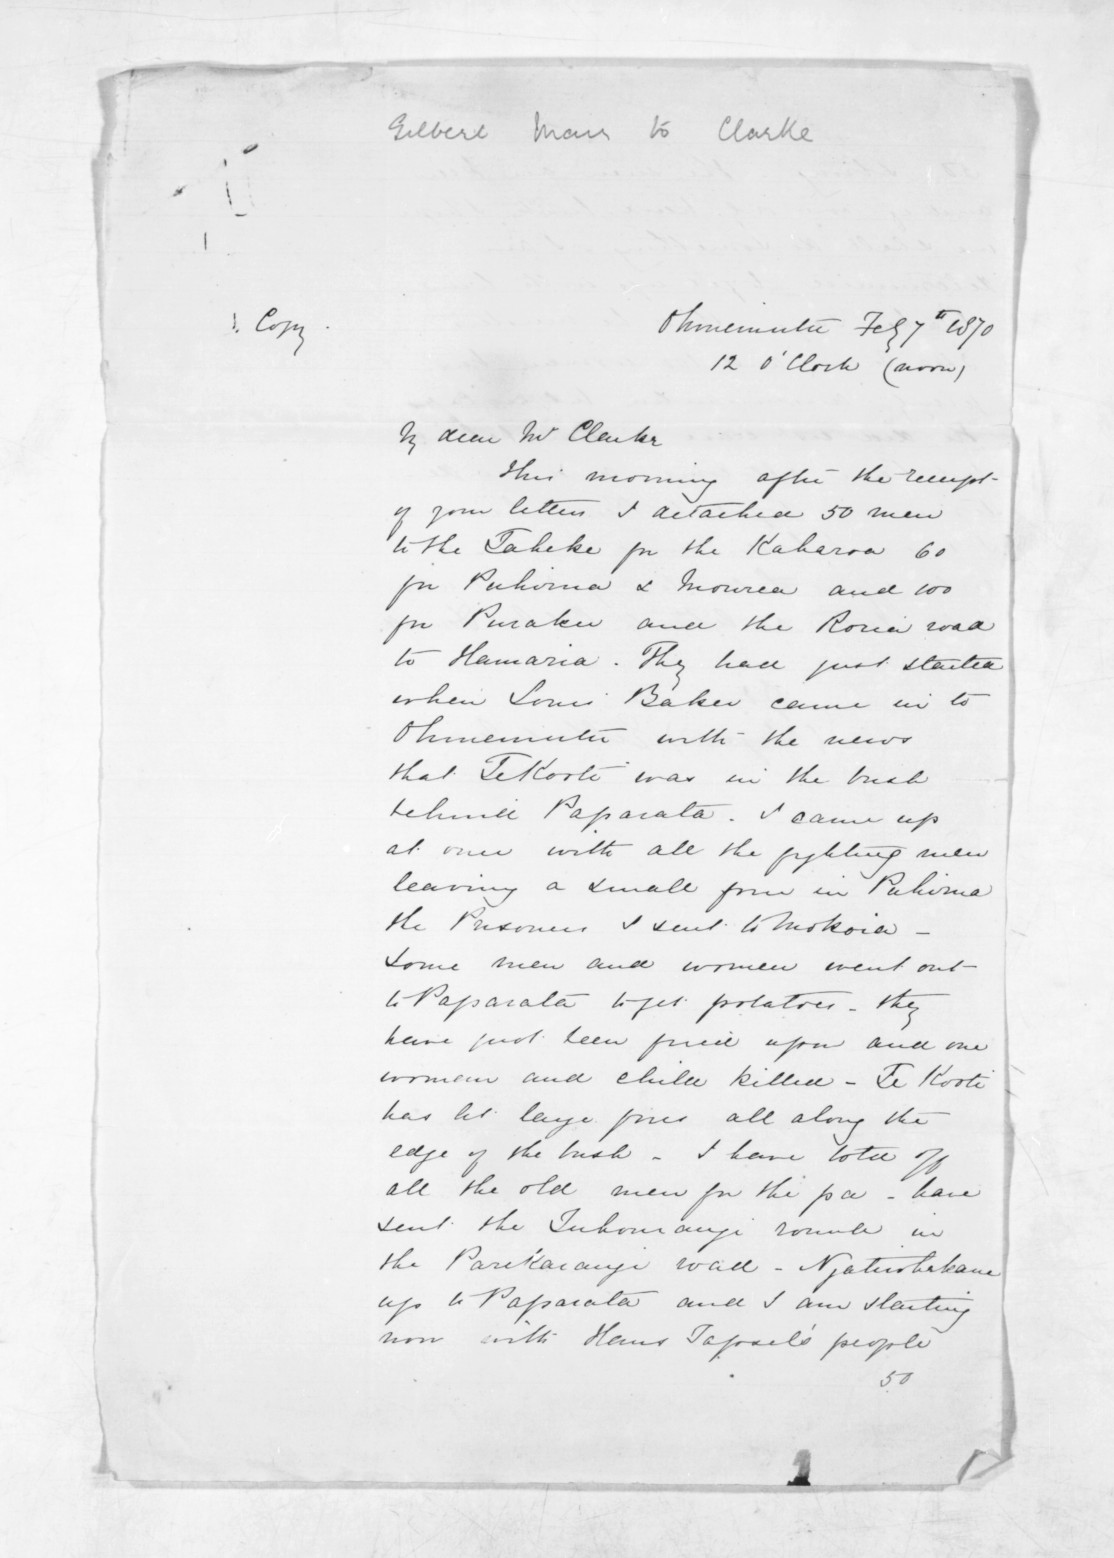 Gilbert Mair to Clarke
1. Copy.
Ohinemutu Feby 7th 1870
12 O'Clock (noon)
My dear Mr Clarke
This morning after the receipt
of your letters I detached 50 men
to the Taheke for the Kaharoa 60
for Puhirua & Mourea and 100
for Puraku and the
road
to Hamaria. They had just started
when Louis Baker came in to
Ohinemutu with the news
that Te Kooti was in the bush
behind Paparata. I came up
at once with all the fighting men
leaving a small force in Puhirua
the Prisoners I sent to Mokoia -
Some men and women went out
to Paparata to get potatoes - they
have just been fired upon and one
woman and child killed - Te Kooti
has lit large fires all along the
edge of the bush - I have told off
all the old men for the pa - have
sent the Tuhourangi round in
the Parekarangi road - Ngatiwhakaue
up to Paparata and I am starting
now with Hans Tapsel's people
50
1